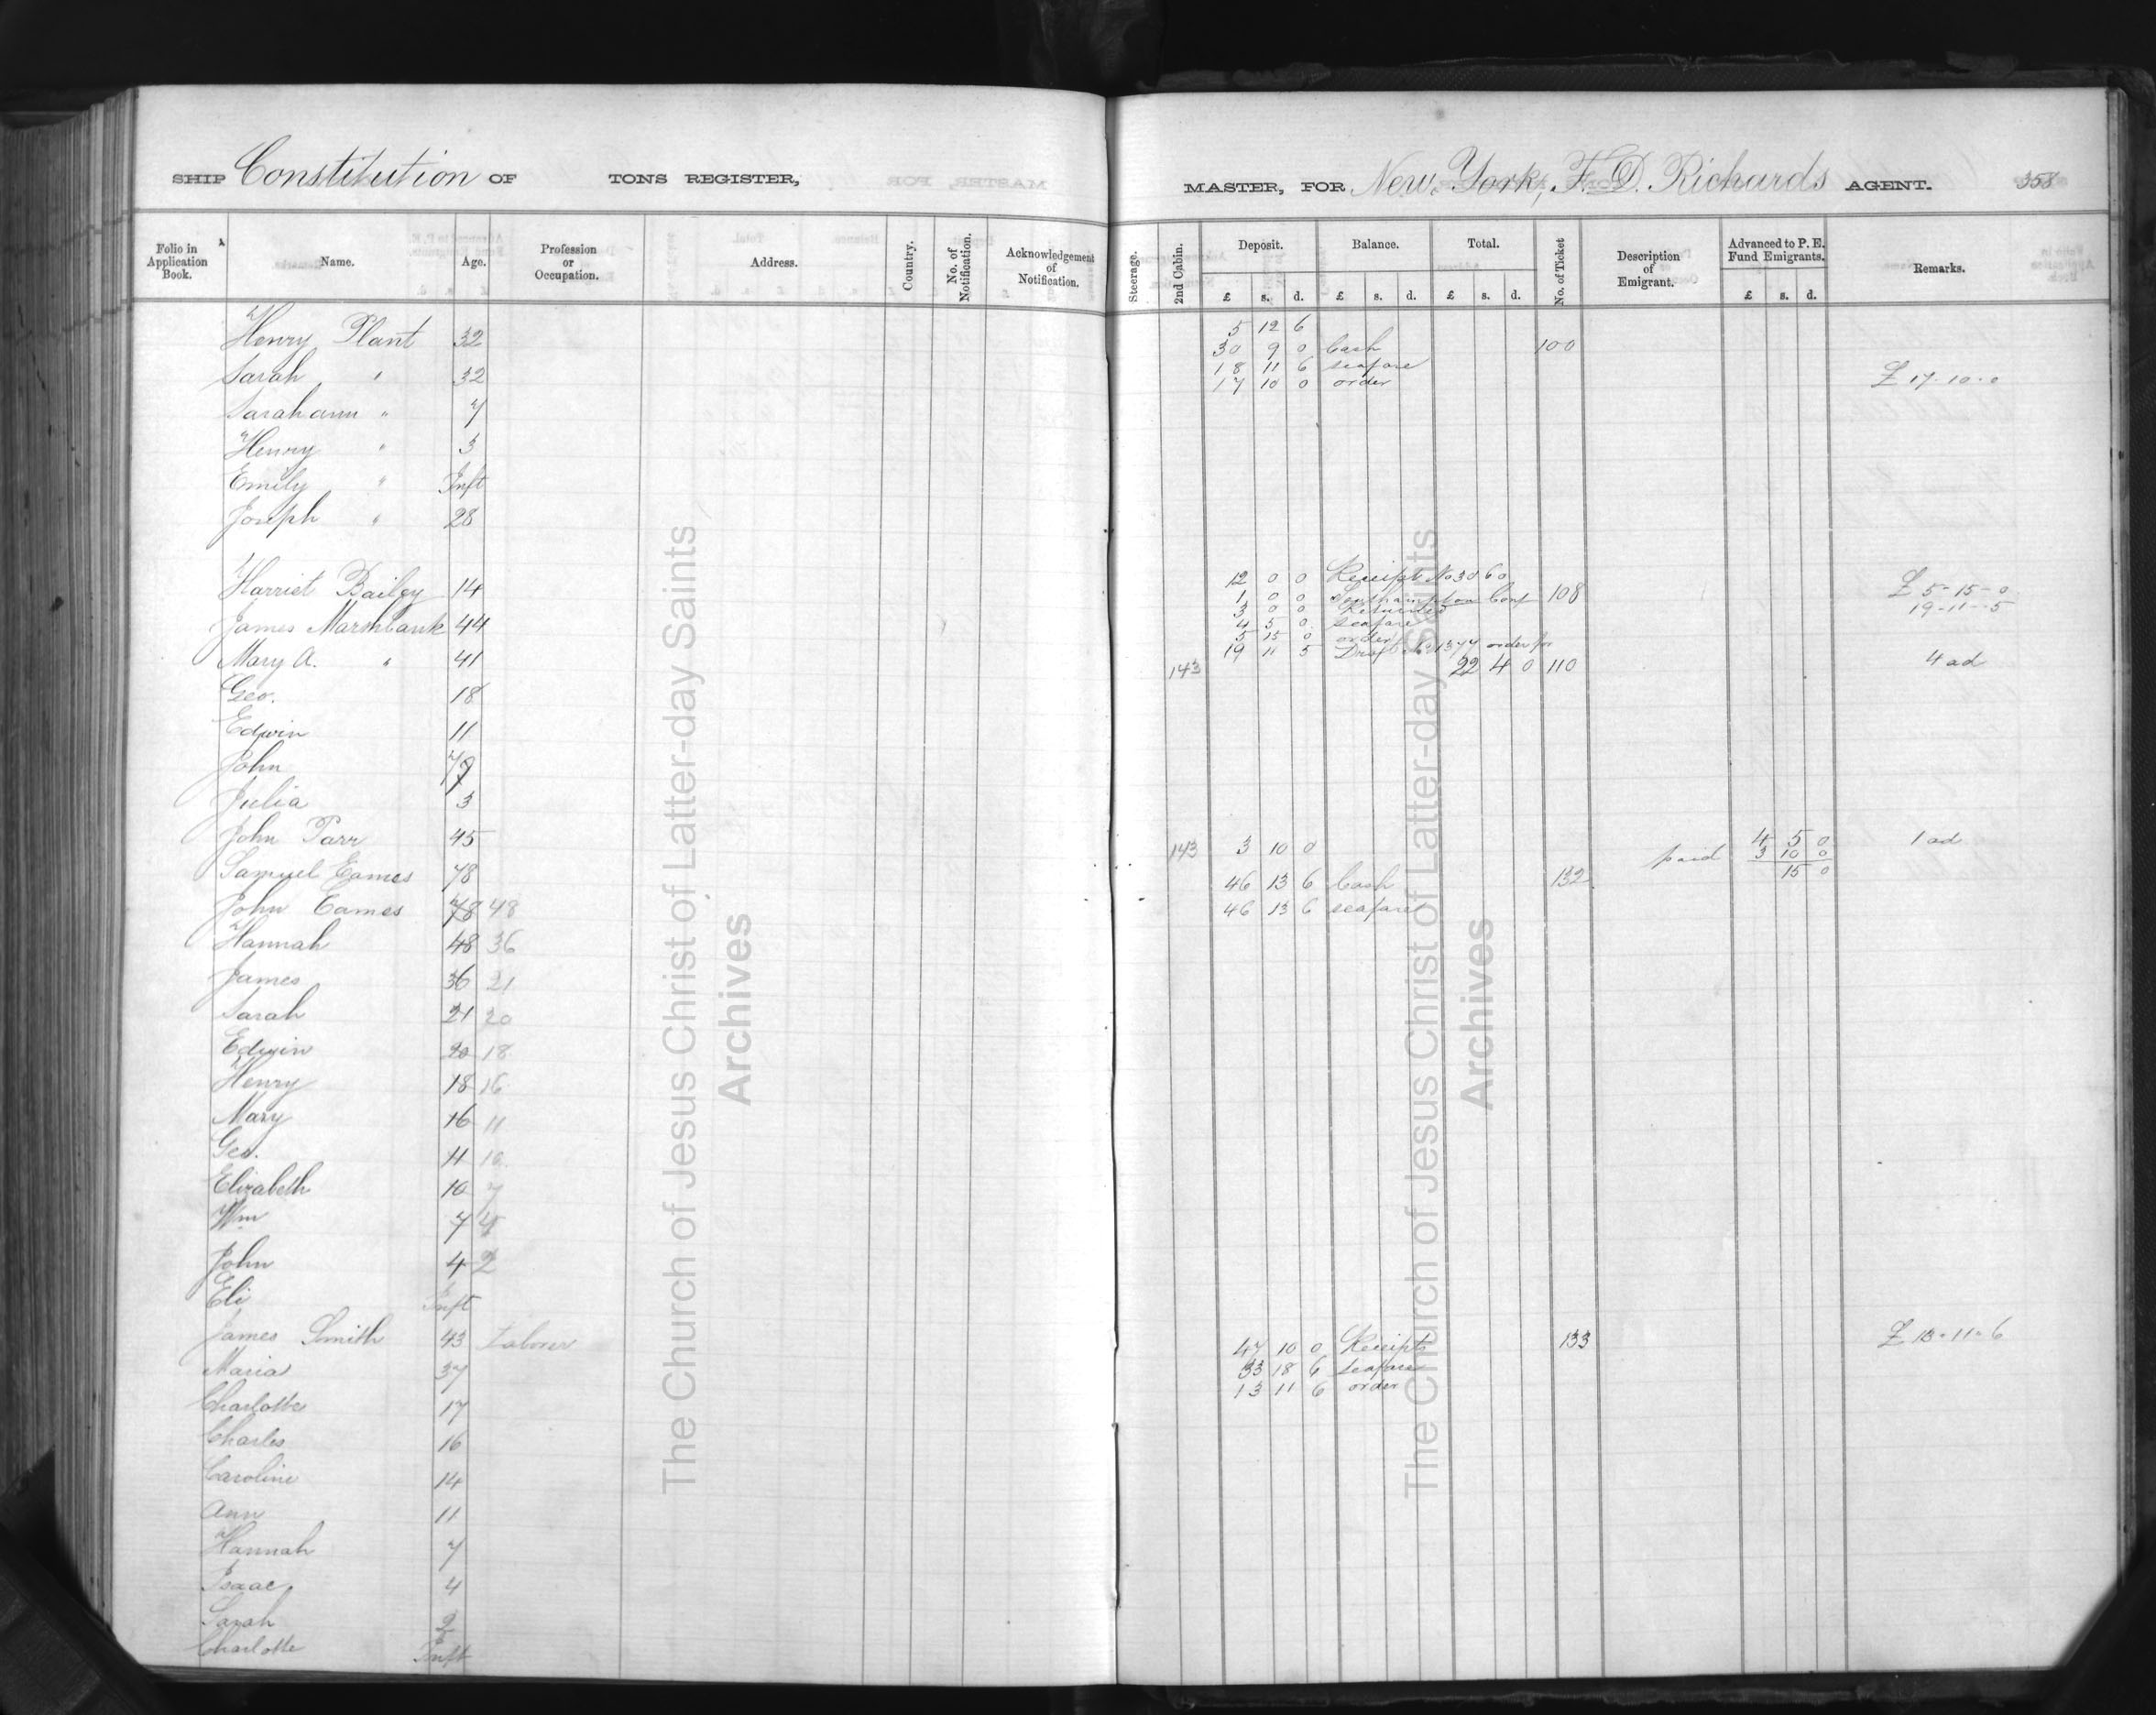 SHIP Constitution OF TONS REGISTER, MASTER, FOR New York, F. D. Richards AGENT. 358
Folio in Application Book. Name. Age. Profession or Occupation. Address. Country. No. of Notification. Acknowledgement of Notification. Steerage. 2nd Cabin. Deposit. Balance. Total. No. of Ticket Description of Emigrant. Advanced to P. E. Fund Emigrants. Remarks.
£ s. d. £ s. d. £ s. d. £ s. d.
5 12 6
Henry Plant 32 30 9 0 Cash 100
18 11 6 seafare
Sarah " 32 17 10 0 order £ 17-10-0
Sarah ann " 7
Henry " 3
Emily " Inft
Joseph " 28
12 0 0 Receipt No 3060
Harriet Bailey 14 1 0 0 Southampton Conf 108 £ 5-15-0
3 0 0 Returned 19-11-5
James Marshbank 44 4 5 0 seafare
5 15 0 order
19 11 5 Draft No 1377 order for
Mary A. " 41 143 22 4 0 110 4 ad
Geo. 18
Edwin 11
John 7
Julia 3
John Parr 45 143 3 10 0 4 5 0 1 ad
paid 3 10 0
Samuel Eames 78 46 13 6 Cash 132 15 0
John Eames 78 48 46 13 6 seafare
Hannah 48 36
James 36 21
Sarah 21 20
Edwin 20 18
Henry 18 16
Mary 16 11
Geo. 11 10
Elizabeth 10 7
Wm 7 4
John 4 2
Eli Inft
James Smith 43 Laborer 47 10 0 Receipts 133 £ 13-11-6
Maria 37 33 18 6 seafare
13 11 6 order
Charlotte 17
Charles 16
Caroline 14
Ann 11
Hannah 7
Isaac 4
Sarah 2
Charlotte Inft
The Church of Jesus Christ of Latter-day Saints
Archives
The Church of Jesus Christ of Latter-day Saints
Archives